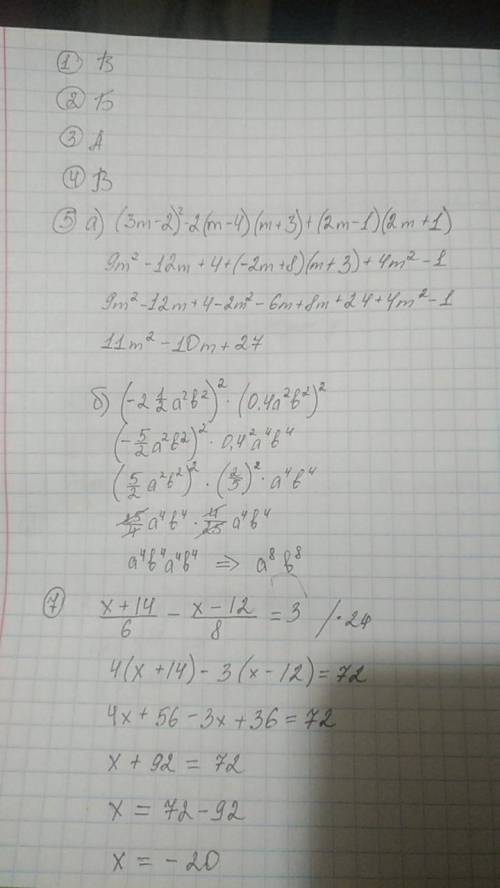 ① В
② Б
③ А
④ В
⑤ а) (3m-2)²-2(m-4)(m+3)+(2m-1)(2m+1)
9m²-12m+4+(-2m+8)(m+3)+4m²-1
9m²-12m+4-2m²-6m+8m+24+4m²-1
11m²-10m+27
б) (-2 1/2 a²b²)²·(0,4a²b²)²
(-5/2 a²b²)²·0,4²a⁴b⁴
(5/2 a²b²)²·(2/5)²·a⁴b⁴
25/4 a⁴b⁴·4/25 a⁴b⁴
a⁴b⁴a⁴b⁴ => a⁸b⁸
⑦ (x+14)/6 - (x-12)/8 = 3 /·24
4(x+14)-3(x-12)=72
4x+56-3x+36=72
x+92=72
x=72-92
x=-20